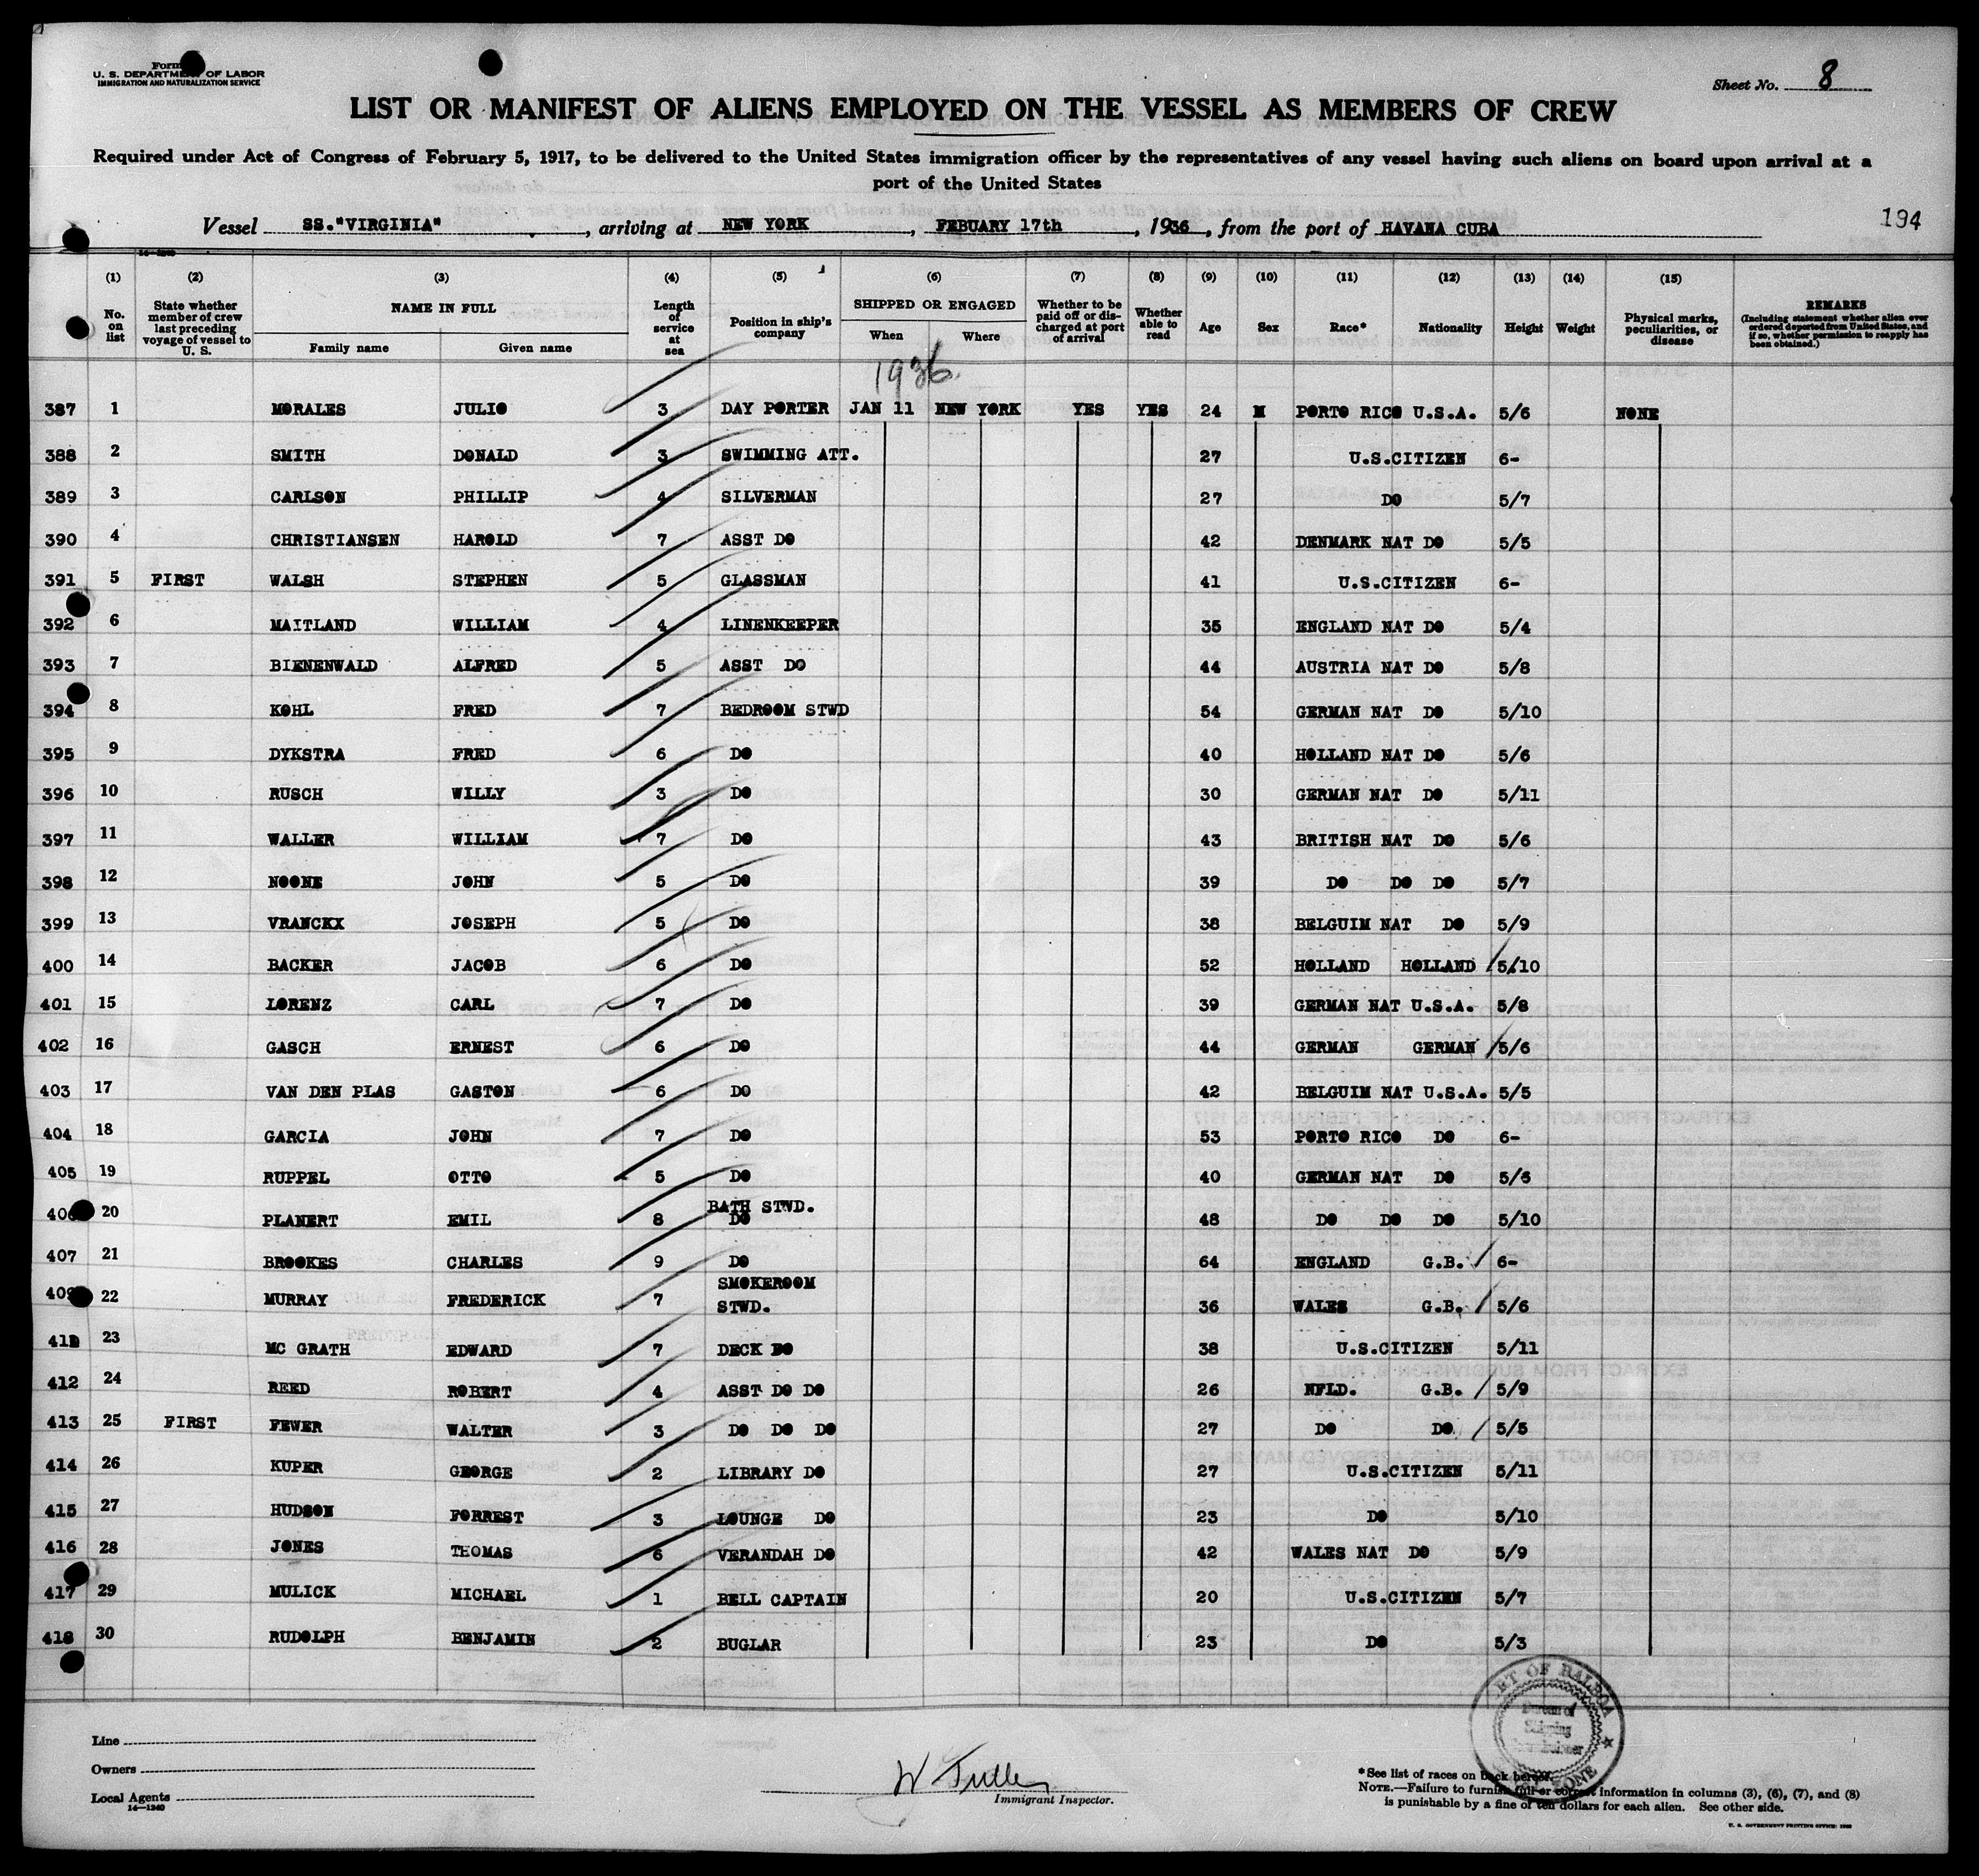 Form
U. S. DEPARTMENT OF LABOR
IMMIGRATION AND NATURALIZATION SERVICE
Sheet No. 8
LIST OR MANIFEST OF ALIENS EMPLOYED ON THE VESSEL AS MEMBERS OF CREW
Required under Act of Congress of February 5, 1917, to be delivered to the United States immigration officer by the representatives of any vessel having such aliens on board upon arrival at a
port of the United States
Vessel SS."VIRGINIA", arriving at NEW YORK, FEBUARY 17th, 1936, from the port of HAVANA CUBA
194
(1) (2) (3) (4) (5) (6) (7) (8) (9) (10) (11) (12) (13) (14) (15)
No. on list
State whether member of crew last preceding voyage of vessel to U. S.
NAME IN FULL
Family name Given name
Length of service at sea
Position in ship's company
SHIPPED OR ENGAGED
When Where
Whether to be paid off or discharged at port of arrival
Whether able to read
Age Sex Race* Nationality Height Weight
Physical marks, peculiarities, or disease
REMARKS
(Including statement whether alien ever ordered deported from United States, and if so, whether permission to reapply has been obtained.)
1936
387 1 MORALES JULIO 3 DAY PORTER JAN 11 NEW YORK YES YES 24 M PORTO RICO U.S.A. 5/6 NONE
388 2 SMITH DONALD 3 SWIMMING ATT. 27 U.S.CITIZEN 6-
389 3 CARLSON PHILLIP 4 SILVERMAN 27 DO 5/7
390 4 CHRISTIANSEN HAROLD 7 ASST DO 42 DENMARK NAT DO 5/5
391 5 FIRST WALSH STEPHEN 5 GLASSMAN 41 U.S.CITIZEN 6-
392 6 MAITLAND WILLIAM 4 LINENKEEPER 35 ENGLAND NAT DO 5/4
393 7 BIENENWALD ALFRED 5 ASST DO 44 AUSTRIA NAT DO 5/8
394 8 KOHL FRED 7 BEDROOM STWD 54 GERMAN NAT DO 5/10
395 9 DYKSTRA FRED 6 DO 40 HOLLAND NAT DO 5/6
396 10 RUSCH WILLY 3 DO 30 GERMAN NAT DO 5/11
397 11 WALLER WILLIAM 7 DO 43 BRITISH NAT DO 5/6
398 12 NOONE JOHN 5 DO 39 DO DO DO 5/7
399 13 VRANCKX JOSEPH 5 DO 38 BELGUIM NAT DO 5/9
400 14 BACKER JACOB 6 DO 52 HOLLAND HOLLAND 5/10
401 15 LORENZ CARL 7 DO 39 GERMAN NAT U.S.A. 5/8
402 16 GASCH ERNEST 6 DO 44 GERMAN GERMAN 5/6
403 17 VAN DEN PLAS GASTON 6 DO 42 BELGUIM NAT U.S.A. 5/5
404 18 GARCIA JOHN 7 DO 53 PORTO RICO DO 6-
405 19 RUPPEL OTTO 5 DO 40 GERMAN NAT DO 5/6
406 20 PLANERT EMIL 8 BATH STWD. DO 48 DO DO DO 5/10
407 21 BROOKES CHARLES 9 DO 64 ENGLAND G.B. 6-
22 MURRAY FREDERICK 7 SMOKEROOM STWD. 36 WALES G.B. 5/6
23 MC GRATH EDWARD 7 DECK DO 38 U.S.CITIZEN 5/11
412 24 REED ROBERT 4 ASST DO DO 26 NFLD. G.B. 5/9
413 25 FIRST FEWER WALTER 3 DO DO DO 27 DO DO 5/5
414 26 KUPER GEORGE 2 LIBRARY DO 27 U.S.CITIZEN 5/11
415 27 HUDSON FORREST 3 LOUNGE DO 23 DO 5/10
416 28 JONES THOMAS 6 VERANDAH DO 42 WALES NAT DO 5/9
417 29 MULICK MICHAEL 1 BELL CAPTAIN 20 U.S.CITIZEN 5/7
418 30 RUDOLPH BENJAMIN 2 BUGLAR 23 DO 5/3
Line
Owners
Local Agents
14—1240
W Fuller
Immigrant Inspector.
OF BALBOA
Bureau of
Shipping
ZONE
*See list of races on back hereof.
NOTE.—Failure to furnish full or correct information in columns (3), (6), (7), and (8)
is punishable by a fine of ten dollars for each alien. See other side.
U. S. GOVERNMENT PRINTING OFFICE